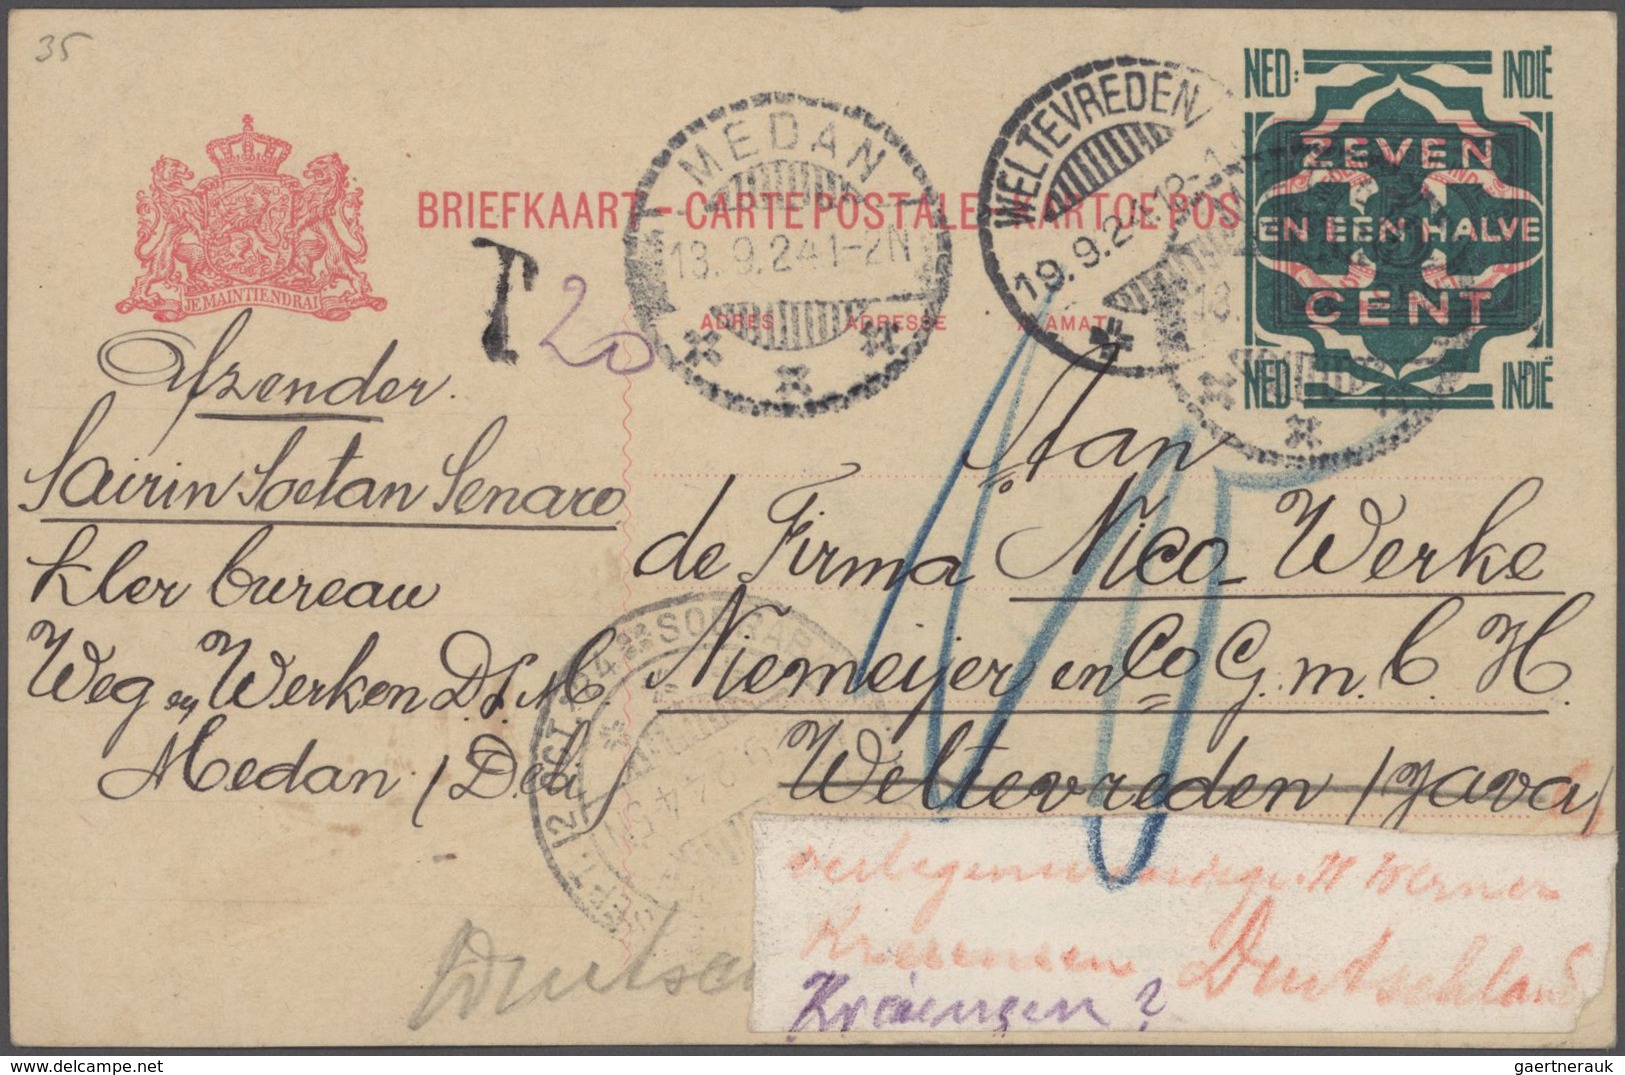 35
NED: INDIË
ZEVEN
EN EEN HALVE
CENT
NED INDIË
JE MAINTIENDRAI
BRIEFKAART - CARTE POSTALE - KARTOE POS
ADRES ADRESSE ALAMAT
MEDAN
13.9.24 1-2N
WELTEVREDEN
19.9.24.12-1
T 20
10
Afzender.
Sairin Soetan Senaro
Kler bureau
Weg en Werken D.S.M.
Medan / Deli
Aan
de Firma Nico Werke
Niemeijer en Co G.m.b.H.
Weltevreden / Java /
SOERABA
12 OCT
W Werner
Kreiensen Deutschland
Kreiensen?
Deutsc
gaertnerauk